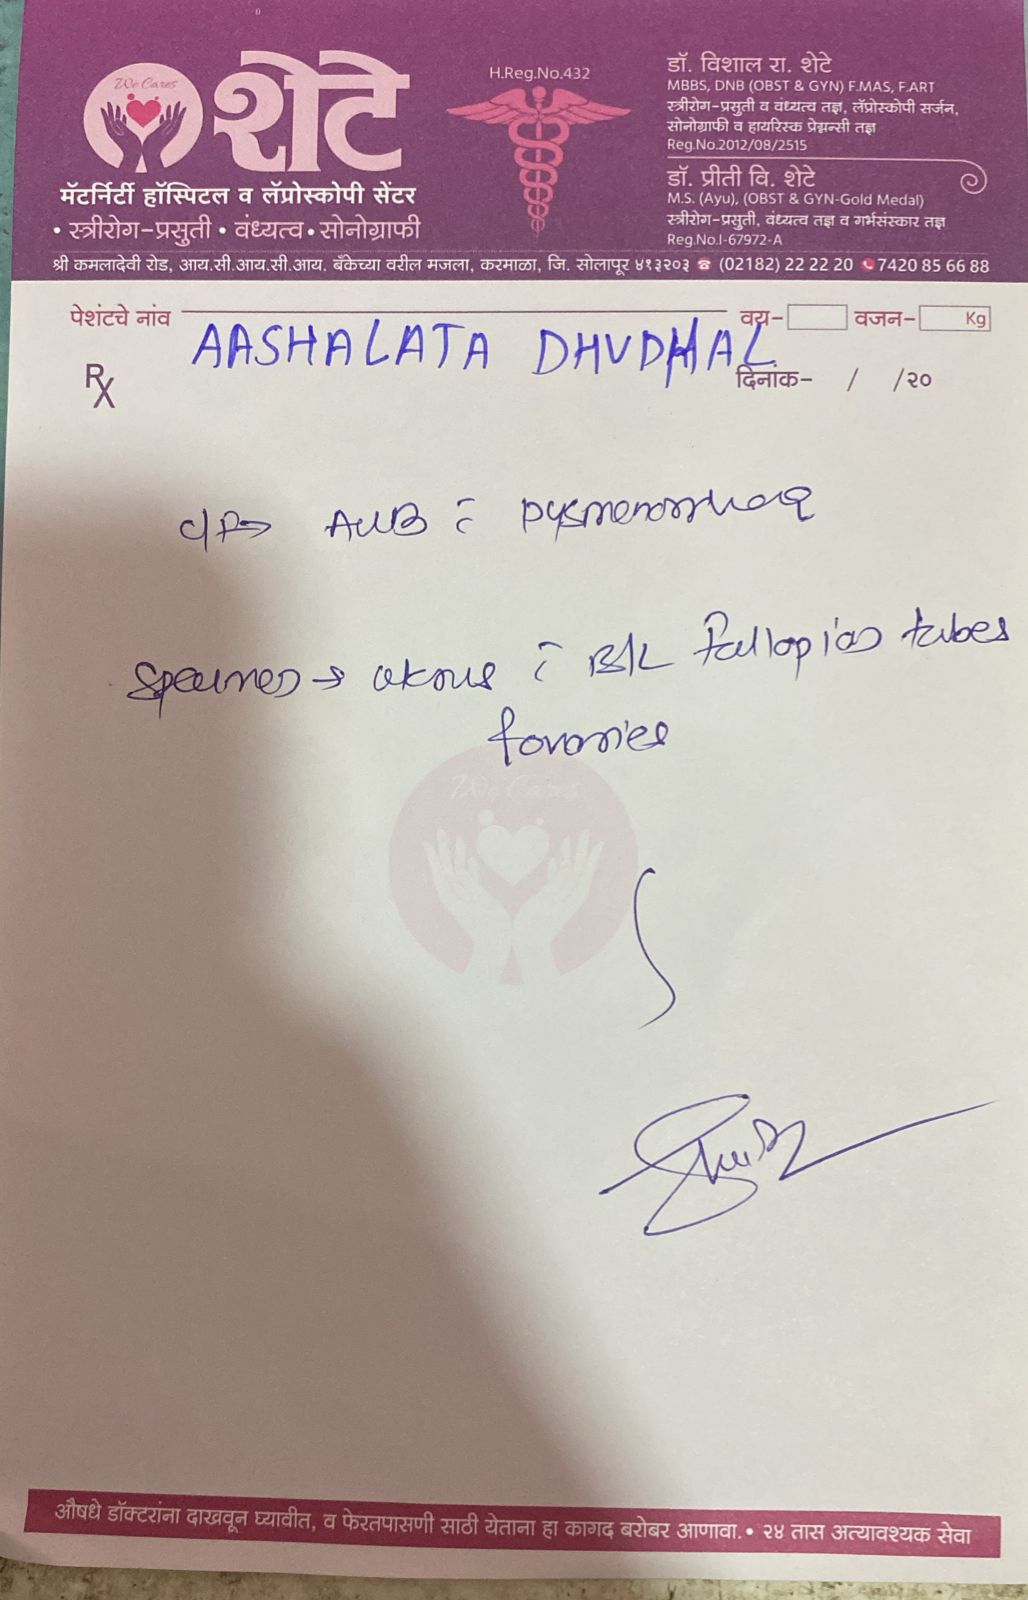 We Cares
शेटे
मॅटर्निटी हॉस्पिटल व लॅप्रोस्कोपी सेंटर
• स्त्रीरोग-प्रसुती • वंध्यत्व • सोनोग्राफी
H.Reg.No.432
डॉ. विशाल रा. शेटे
MBBS, DNB (OBST & GYN) F.MAS, F.ART
स्त्रीरोग-प्रसुती व वंध्यत्व तज्ञ, लॅप्रोस्कोपी सर्जन,
सोनोग्राफी व हायरिस्क प्रेग्नन्सी तज्ञ
Reg.No.2012/08/2515
डॉ. प्रीती वि. शेटे
M.S. (Ayu), (OBST & GYN-Gold Medal)
स्त्रीरोग-प्रसुती, वंध्यत्व तज्ञ व गर्भसंस्कार तज्ञ
Reg.No.I-67972-A
श्री कमलादेवी रोड, आय.सी.आय.सी.आय. बँकेच्या वरील मजला, करमाळा, जि. सोलापूर ४१३२०३ ☎ (02182) 22 22 20 7420 85 66 88
पेशंटचे नांव AASHALATA DHUDHAL वय- वजन- Kg
Rx दिनांक- / /२०
AUB c̄ Dysmenorrhoea
Specimen → uterus c̄ B/L fallopian tubes
& ovaries
We Cares
औषधे डॉक्टरांना दाखवून घ्यावीत, व फेरतपासणी साठी येताना हा कागद बरोबर आणावा. • २४ तास अत्यावश्यक सेवा